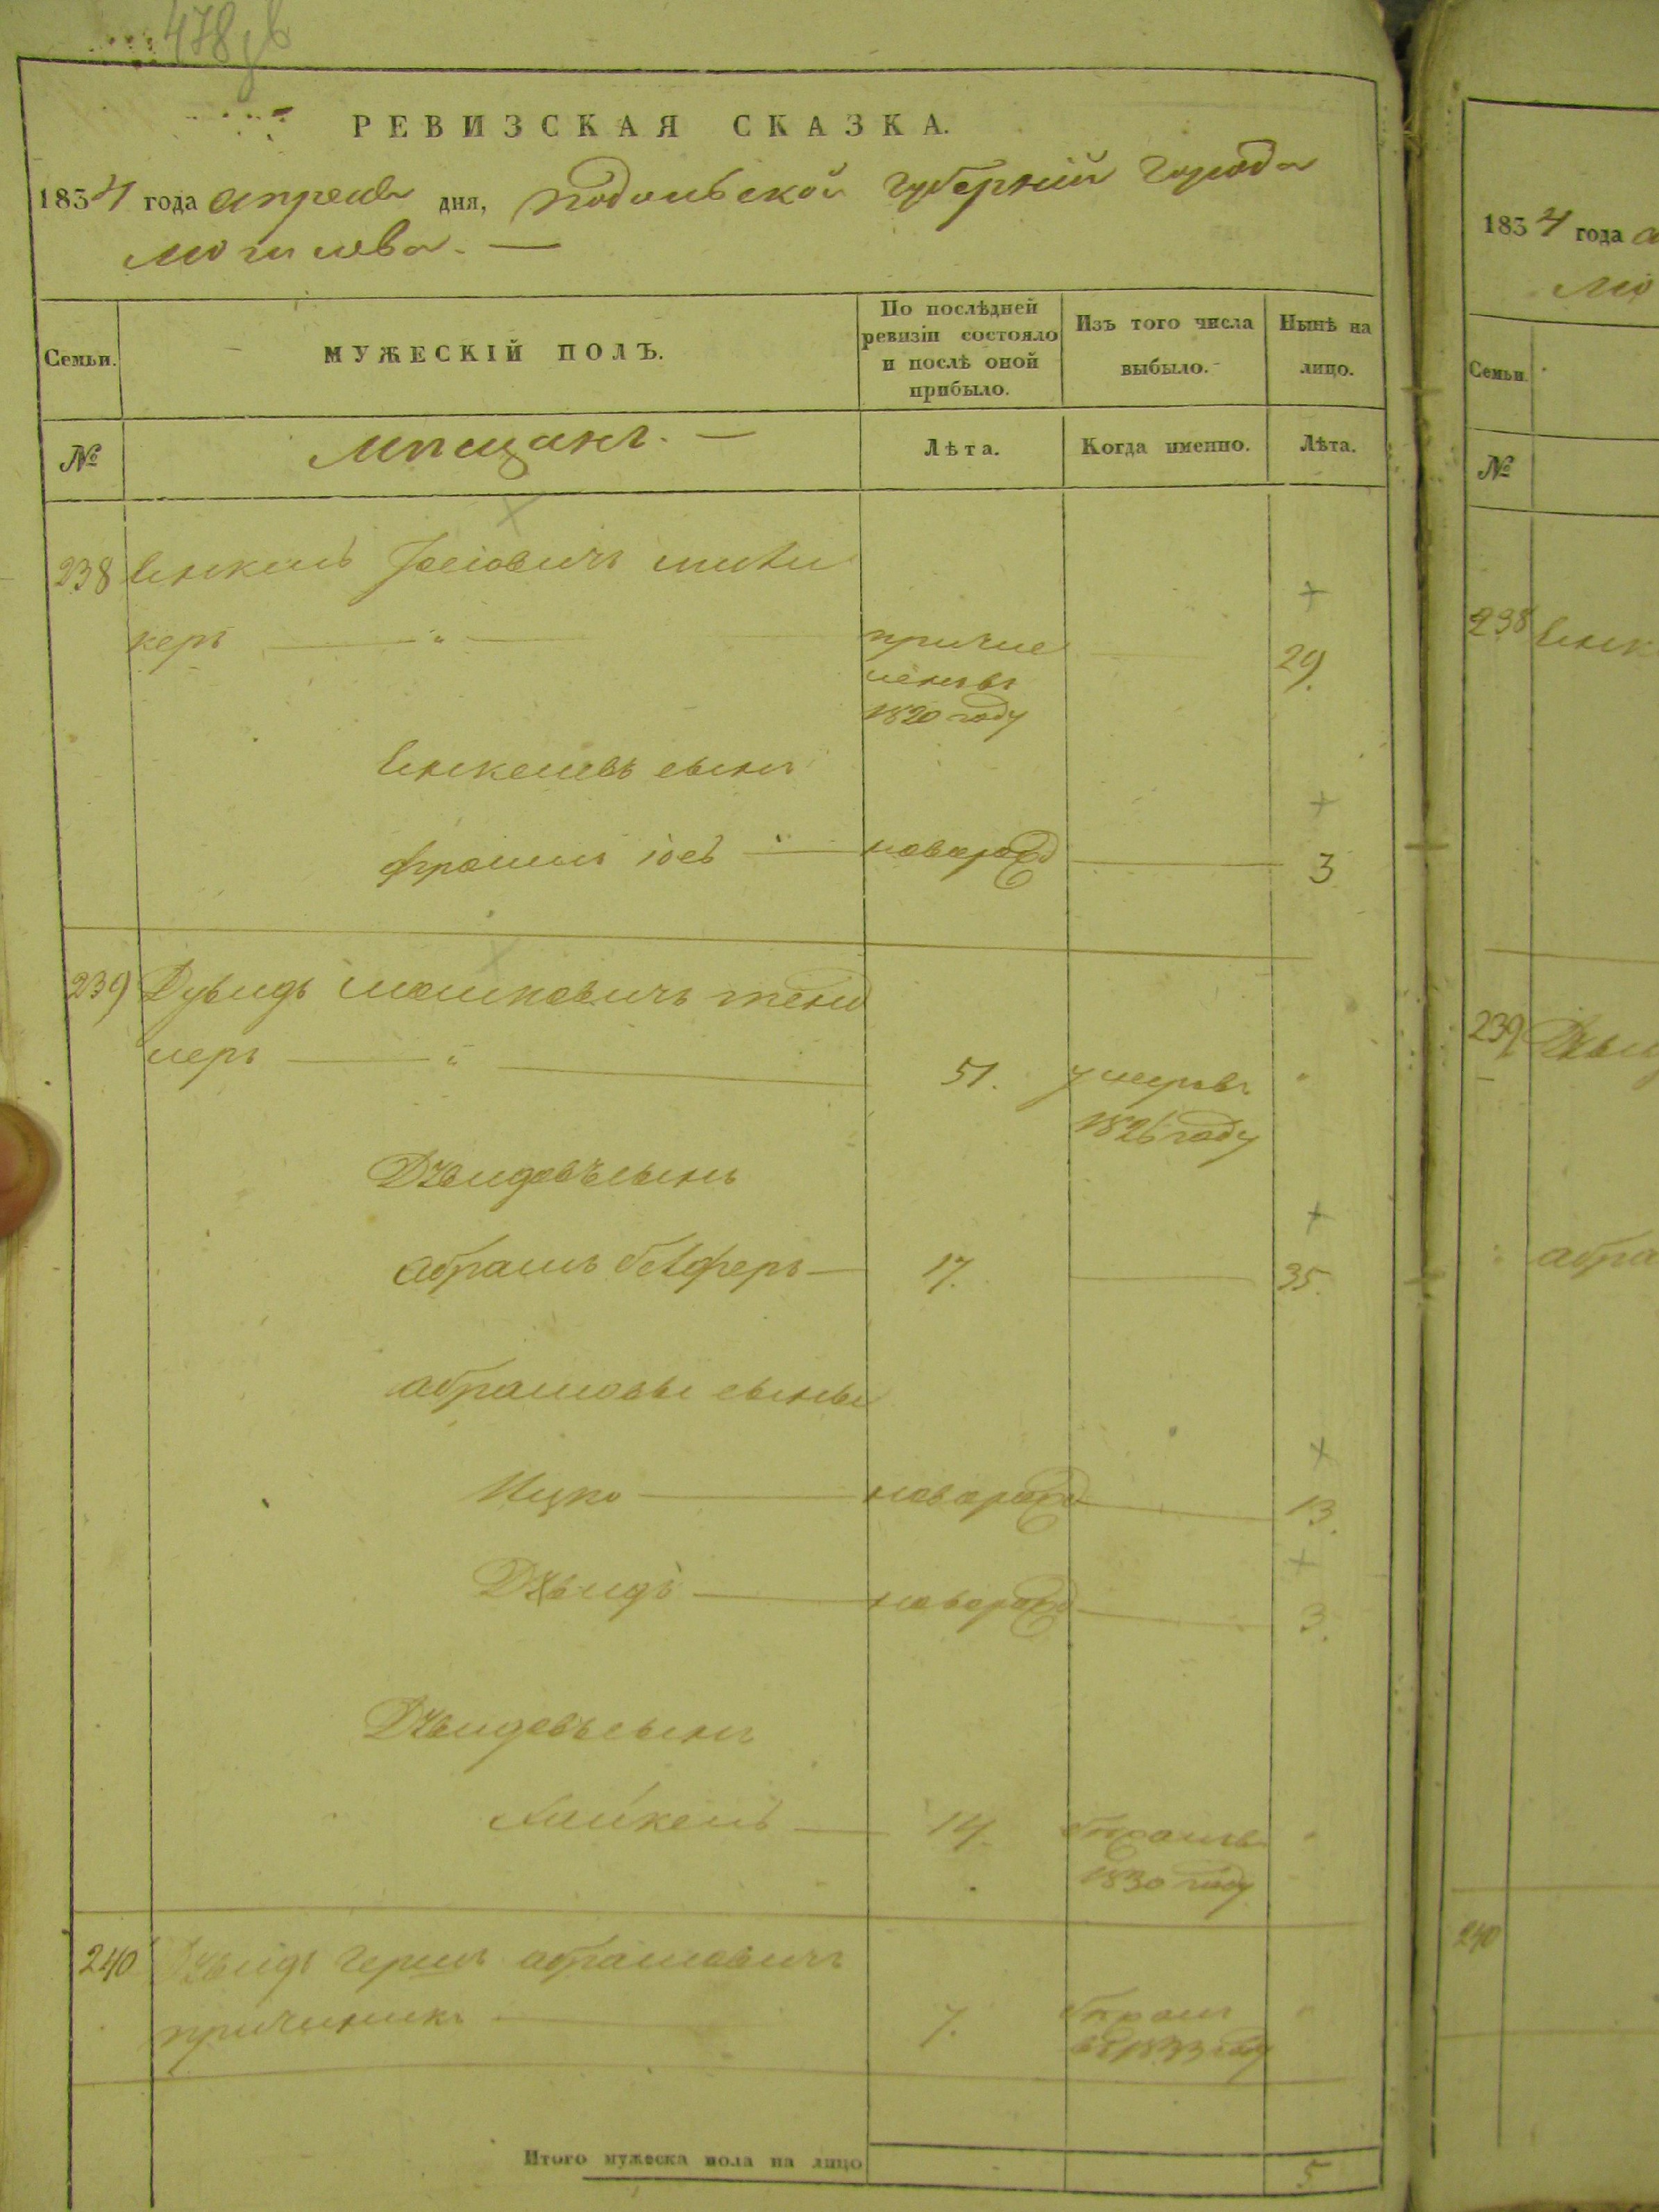 478
РЕВИЗСКАЯ СКАЗКА.
1834 года апреля дня, Подольской губерніи города
Могилева. —
Семьи.
МУЖЕСКІЙ ПОЛЪ.
По послѣдней ревизіи состояло и послѣ оной прибыло.
Изъ того числа выбыло.
Нынѣ на лицо.
№
Мещанъ. —
Лѣта.
Когда именно.
Лѣта.
238 Іосіовичъ
керъ — причис 29.
ленъ въ
1820 году
сынъ
Фроимъ Іось — новорожд — 3
239 Дувидъ Мошковичъ
леръ — 51. умеръ въ
1826 году
Дувидовъ сынъ
Абрамъ — 17. — 35.
Абрамовы сыны
Ицко — новорожд — 13.
Дувидъ — новорожд — 3.
Дувидовъ сынъ
— 14.
1830 году
240 Дувидъ Герш Абрамовичъ
7.
въ 1833 году
Итого мужеска пола на лицо 5
1834 года
Мо
Семьи.
№
238
239
абра
240